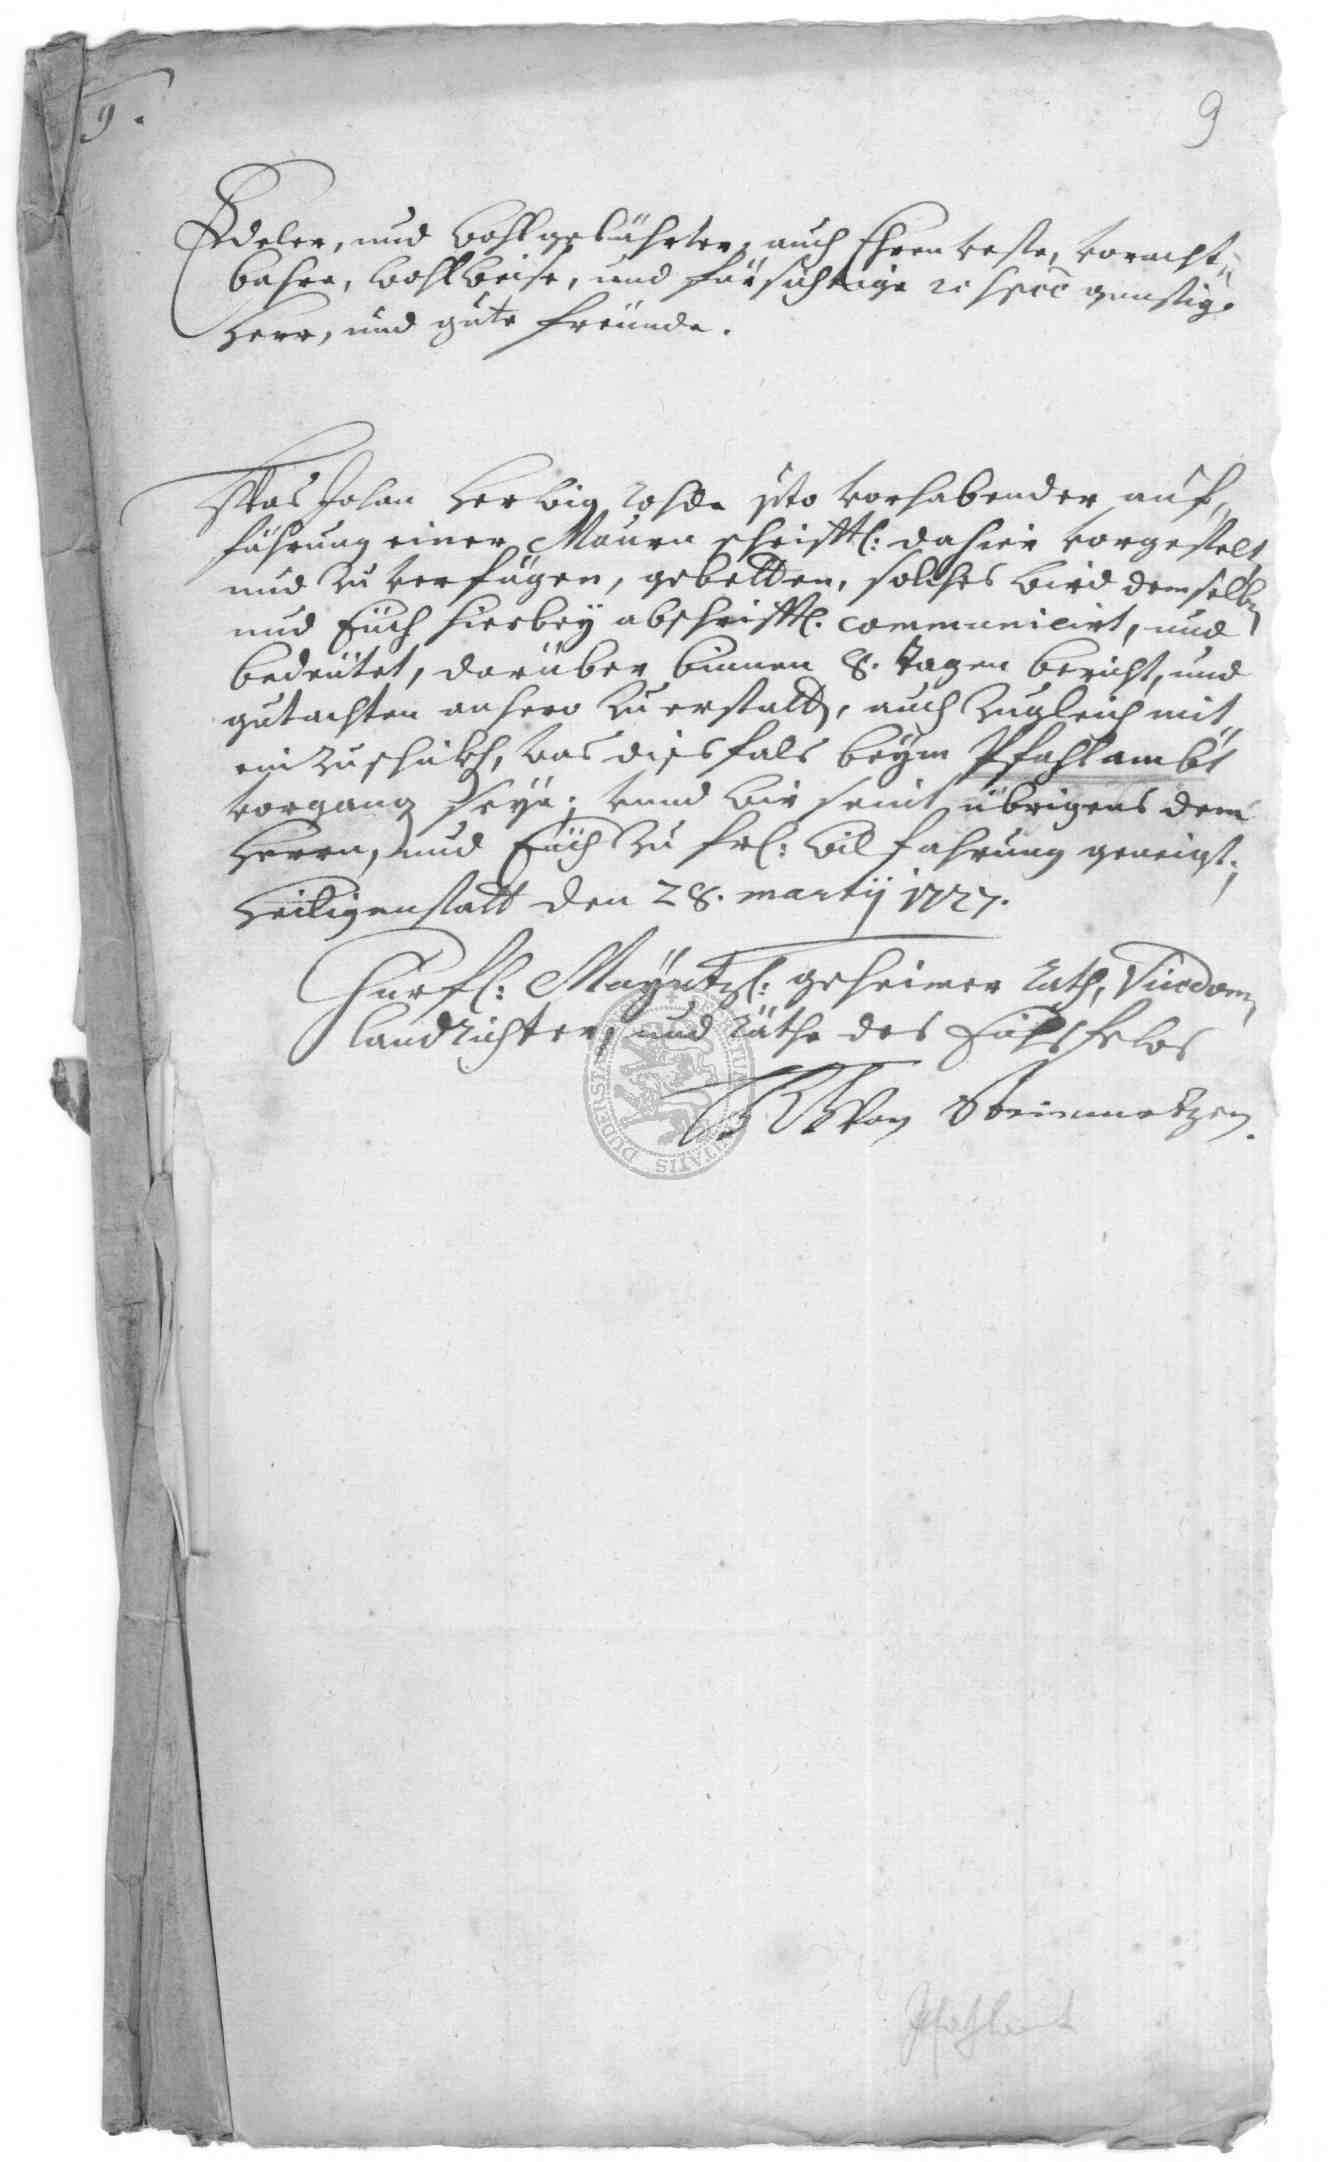 9.
9
Edeler, und wohlgelährter, auch Ehrenveste, voracht=
bahre, wohlweise, und fürsichtige respec günstige
Herr, und gute freünde.
Was Johan Herwig Rohde pto vorhabender auf=
führung einer Mauren schriftl: dahier vorgestelt,
und zu verfügen, gebetten, solches wird demselben
und Eüch hierbeÿ abschriftl. communicirt, und
bedeütet, darüber binnen 8. tagen bericht, und
gutachten anhero zu erstatten, auch zugleich mit
ein zuschicken, was diesfals beÿm Pfahlambt
vorgangen seÿe; vnnd wir seint übrigens dem
Herrn, und Eüch zu frl: wilfahrung geneigt;
Heiligenstatt den 28. martij 1727.
Churfl: Maÿntzl: geheimer rath, Vicedom,
Landrichter, und Räthe des Eichsfelds
von Steinmetzen.
SIGILLUM CIVITATIS DUDERSTAD
Pfahlamt